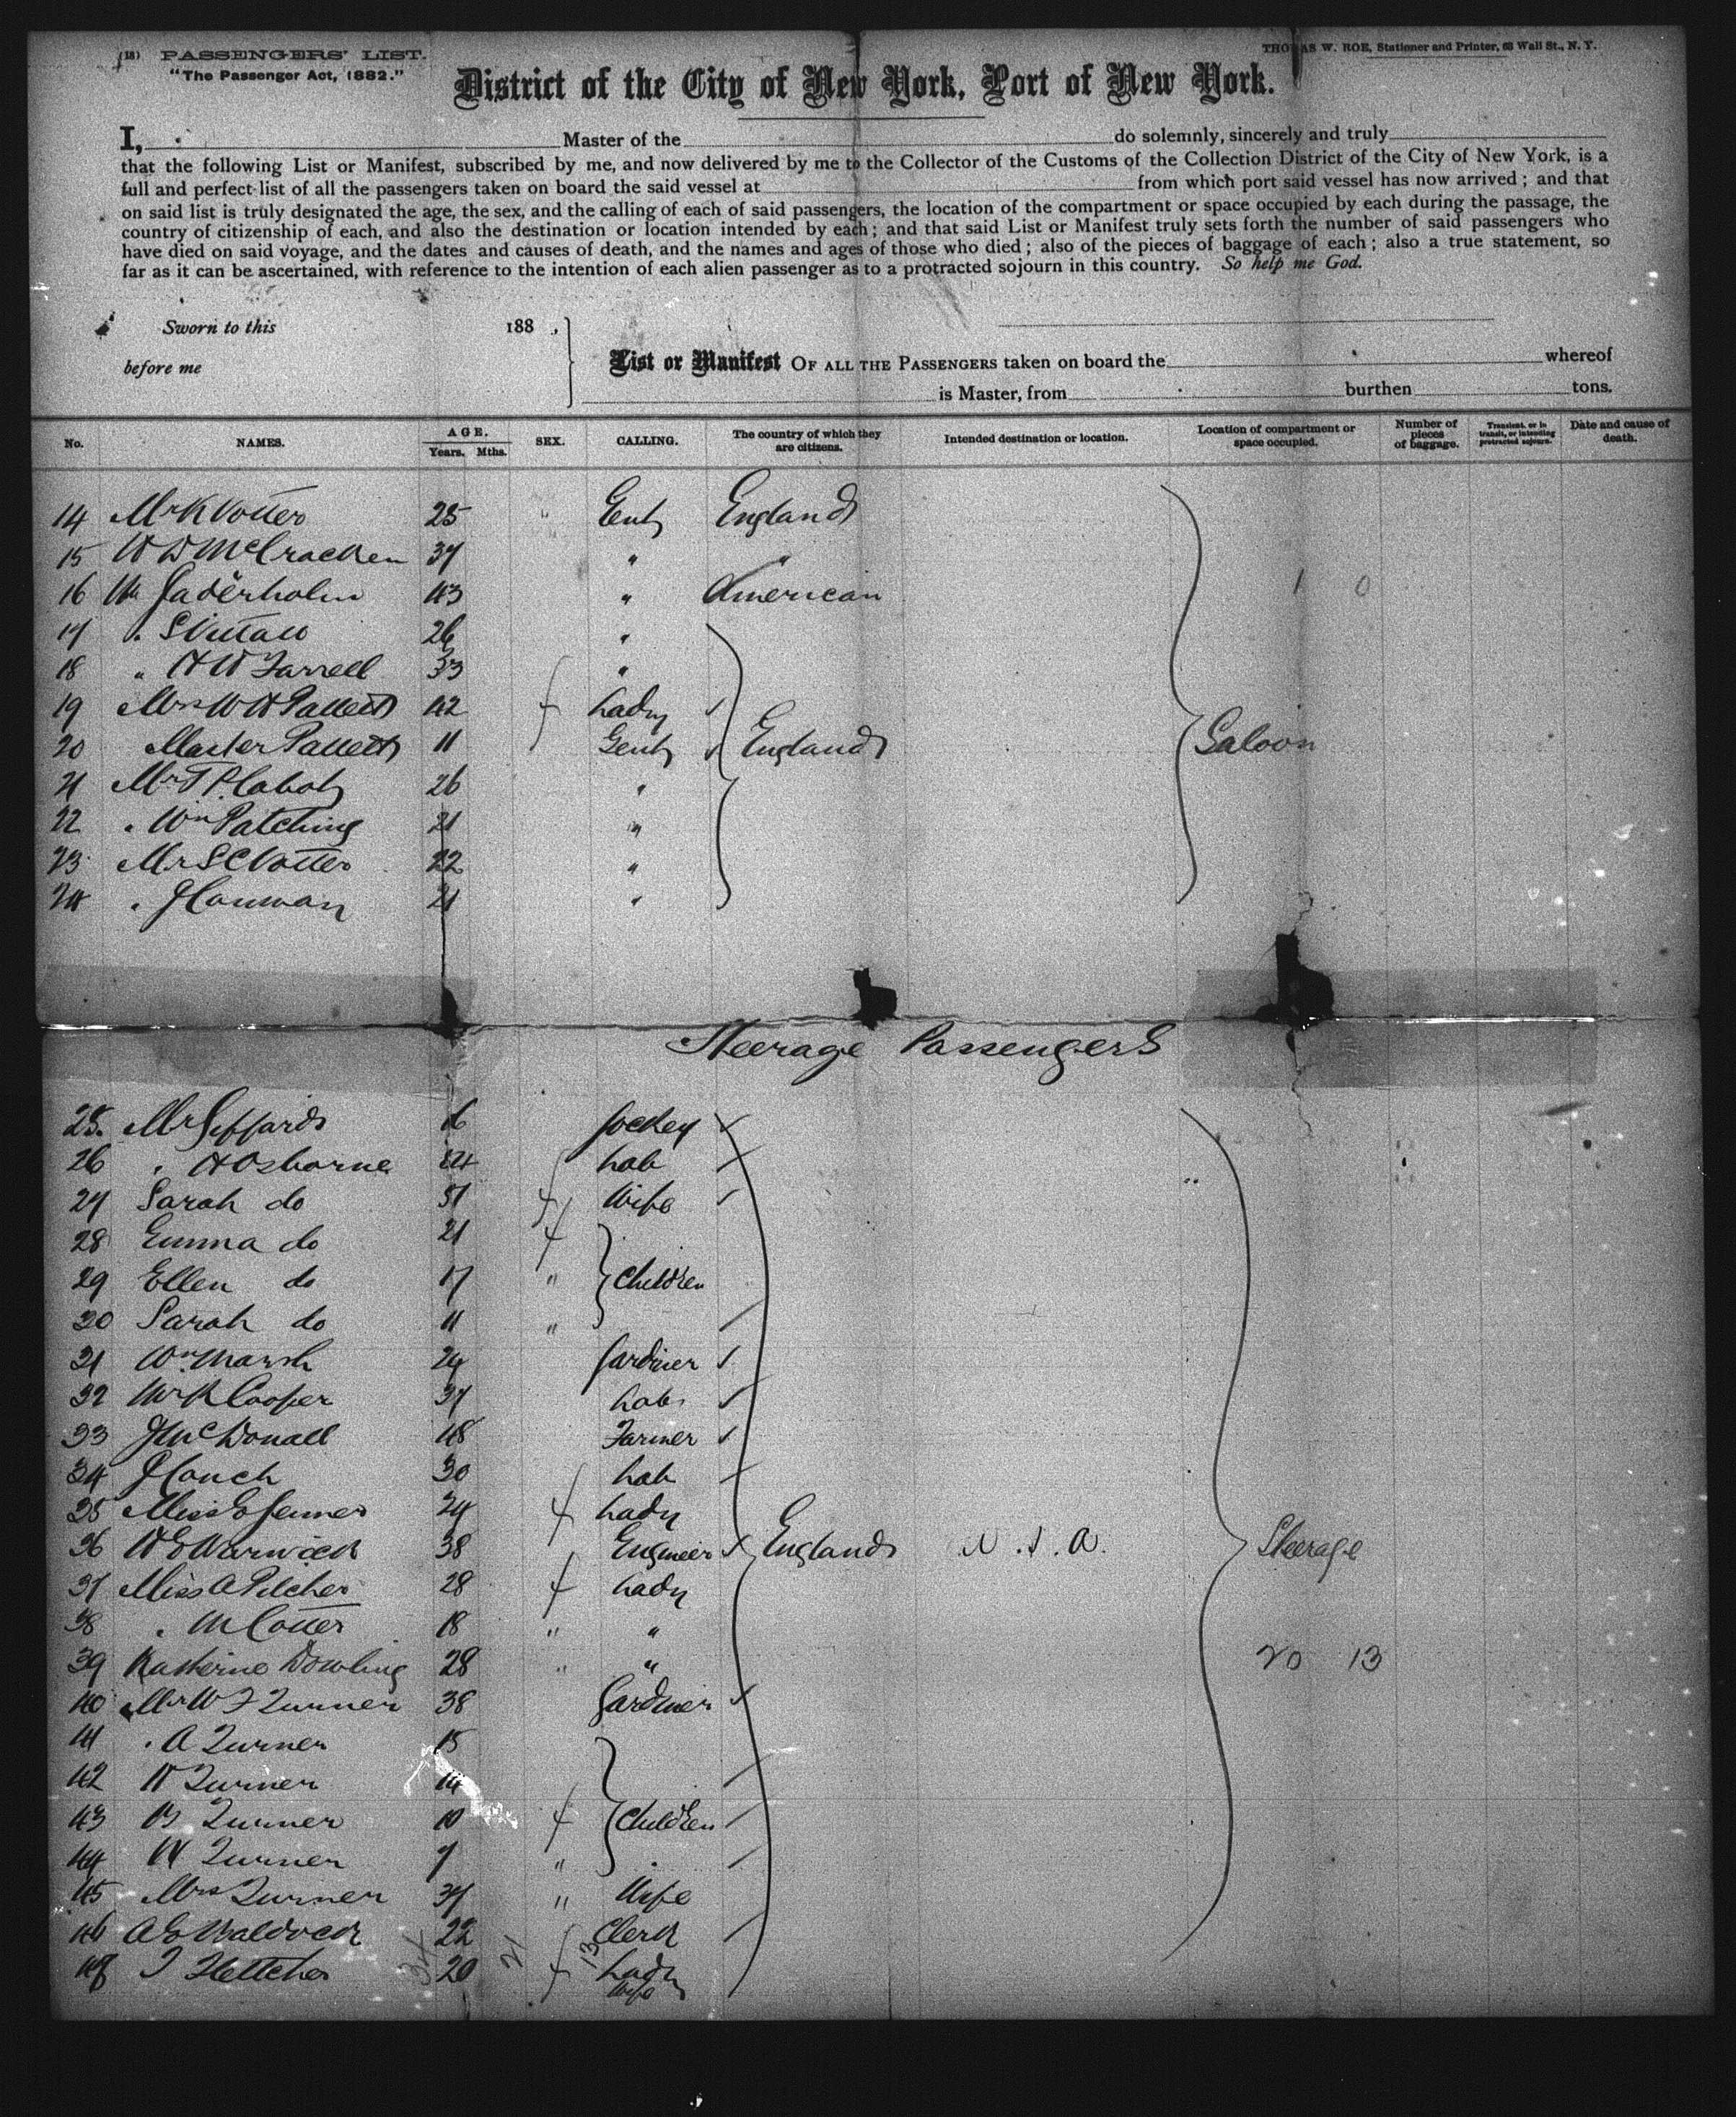 (18) PASSENGERS' LIST.
"The Passenger Act, 1882."
THOMAS W. ROE, Stationer and Printer, 63 Wall St., N. Y.
District of the City of New York, Port of New York.
I, Master of the do solemnly, sincerely and truly
that the following List or Manifest, subscribed by me, and now delivered by me to the Collector of the Customs of the Collection District of the City of New York, is a
full and perfect list of all the passengers taken on board the said vessel at from which port said vessel has now arrived; and that
on said list is truly designated the age, the sex, and the calling of each of said passengers, the location of the compartment or space occupied by each during the passage, the
country of citizenship of each, and also the destination or location intended by each; and that said List or Manifest truly sets forth the number of said passengers who
have died on said voyage, and the dates and causes of death, and the names and ages of those who died; also of the pieces of baggage of each; also a true statement, so
far as it can be ascertained, with reference to the intention of each alien passenger as to a protracted sojourn in this country. So help me God.
Sworn to this 188 ,
before me
List or Manifest OF ALL THE PASSENGERS taken on board the whereof
is Master, from burthen tons.
No. NAMES. AGE. Years. Mths. SEX. CALLING. The country of which they are citizens. Intended destination or location. Location of compartment or space occupied. Number of pieces of baggage. Transient, or in transit, or intending protracted sojourn. Date and cause of death.
14 Mr K Votter 25 " Gent England
15 W D McCracken 37 " "
16 Wm Jaderholm 43 " American 1 0
17 " 26 "
18 " H W Farrell 33 "
19 Mrs W H Pallett 42 f Lady
20 Master Pallett 11 Gent England Saloon
21 Mr T P Cabot 26 "
22 " Wm Patching 21 "
23 Mr S C Votter 22 "
24 " J Canman 21 "
Steerage Passengers
25. Mr Giffard 16 Jockey
26 " H Osborne Lab
27 Sarah do 51 f Wife
28 Emma do 21 f
29 Ellen do 17 " Children
30 Sarah do 11 "
31 Wm Marsh 24 Gardiner
32 Mr R Cooper 37 Lab
33 J McDonall 48 Farmer
34 J Couch 30 Lab
35 Miss E Jenner 24 f Lady
36 W E Warwick 38 Engineer England U.S.A. Steerage
37 Miss A Pilcher 28 f Lady
38 " M Cotter 18 " "
39 Katherine Dowling 28 " " 20 13
40 Mr W F Turner 38 Gardiner
41 " A Turner 15
42 H Turner 14
43 B Turner 10 f Children
44 W Turner 7 "
45 Mrs Turner 37 " Wife
46 A E Waldock 22 Clerk
48 T Fletcher 20 f Lady
Wife
34 21 13